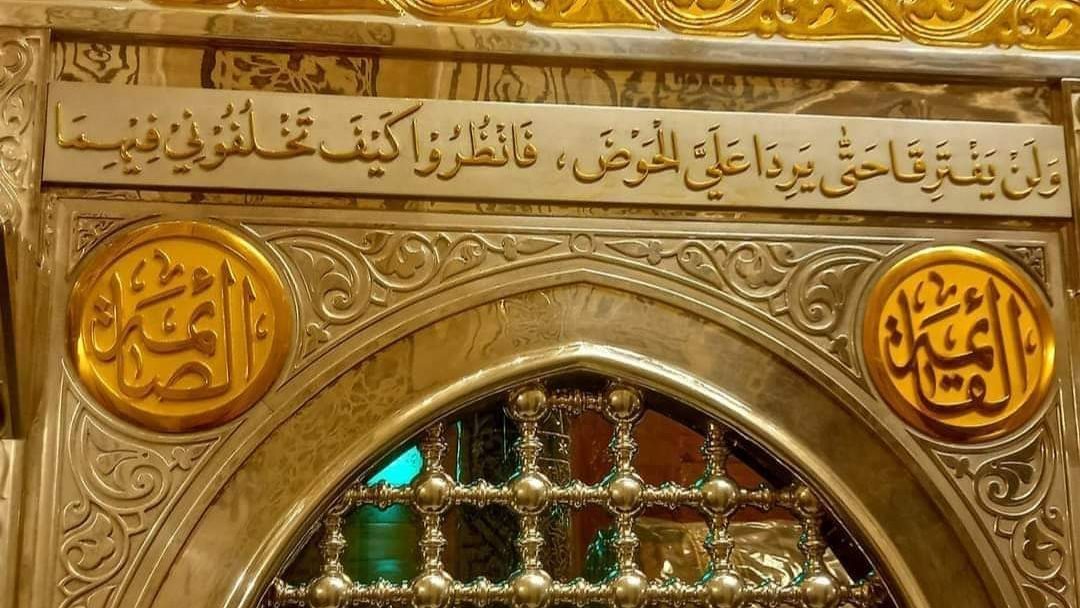 وَلَنْ يَفْتَرِقَا حَتّٰى يَرِدَا عَلَيَّ الْحَوْضَ ، فَانْظُرُوا كَيْفَ تَخْلُفُوْنِيْ فِيْهِمَا
القائمة
الصائمة